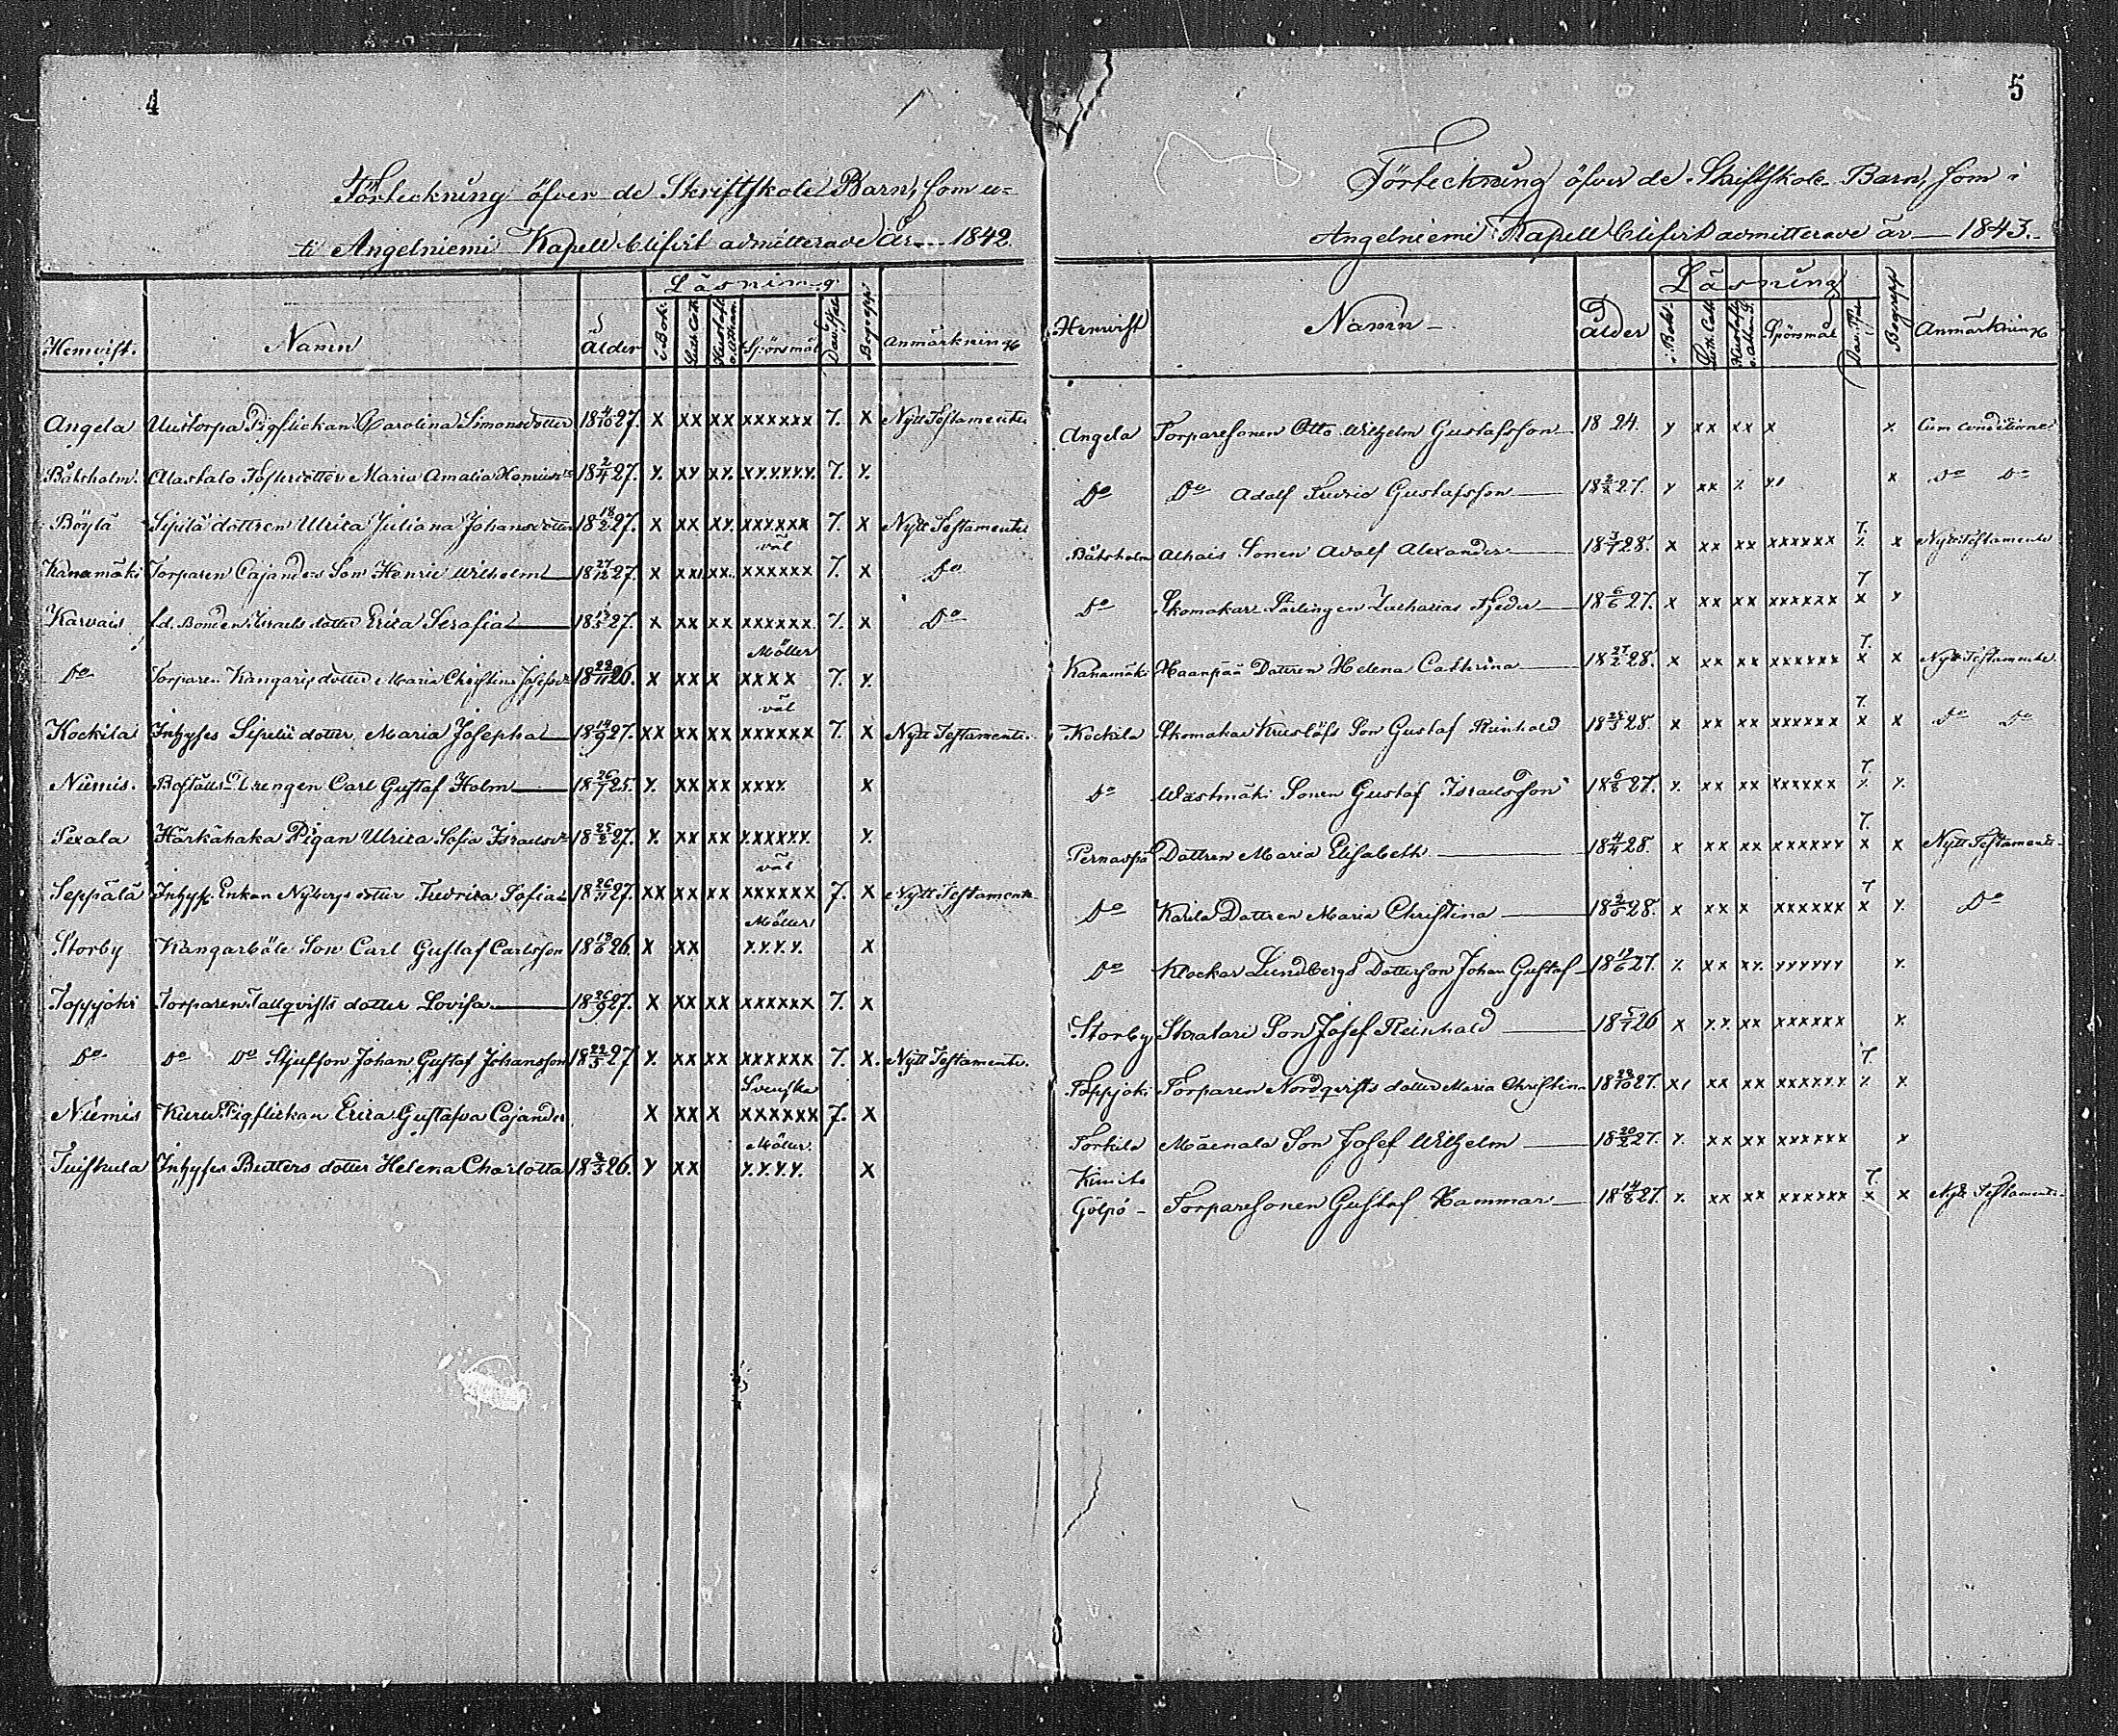 4
Förteckning öfver de Skriftskole Barn, som u-
ti Angelniemi Kapell blifvit admitterade år 1842.
Läsning
Hemvist. Namn Ålder i Bok. Luth. Cat. Hustafl. Spörsmål Dav. Psal. Begrepp Anmärkning
Angela Uustorpa Pigflickan Carolina Simonsdotter 18 4/10 27. x xx xx xxxxxx 7. x Nytt Testamente
Båtsholm. Alastalo Fosterdotter Maria Amalia 18 2/4 27. x xx xx xxxxxx 7. x
Böylä Sipilä dottren Ulrica Juliana Johansdotter 18 18/2 27. x xx xx xxxxxx 7. x Nytt Testamente
väl
Kanamäki Torparen Cajanders Son Henric Wilhelm 18 27/12 27. x xx xx xxxxxx 7. x Do
Karvais Bonden Israels dotter Erica Serafia 18 27. x xx xx xxxxxx 7. x Do
Möller
Do Torparen Kangaris dotter Maria Christina 18 22/11 26. x xx x xxxx 7. x
väl
Kockila Inhyses Sipilä dotter Maria Josepha 18 14/9 27. xx xx xx xxxxxx 7. x Nytt Testamente.
Niemis. Boställs Drengen Carl Gustaf Holm 18 26/7 25. x xx xx xxxx x
Pexala Härkähaka Pigan Ulrica Sofia Israelsdr 18 25/2 27. x xx xx xxxxxx x
väl
Seppälä Inhyses Enkan Nybergs dotter Fredrika Sofia 18 26/11 27. xx xx xx xxxxxx 7. x Nytt Testamente
Möllers
Storby Kangarböle Son Carl Gustaf Carlsson 18 18/6 26. x xx xxxx x
Toppjoki Torparen Tallqvists dotter Lovisa 18 26/9 27. x xx xx xxxxxx 7. x
Do Do Do Stjufson Johan Gustaf Johansson 18 22/5 27 x xx xx xxxxxx 7. x. Nytt Testamente.
Svenska
Niemis Kuru Pigflickan Erica Gustafva Cajander x xx x xxxxxx 7. x
Möller
Tuiskula Inhyses Butters dotter Helena Charlotta 18 26. x xx xxxx x
5
Förteckning öfver de Skriftskole Barn, som i
Angelniemi Kapell blifvit admitterade år 1843.
Läsning
Hemvist Namn Ålder i Bok. Luth. Cat. Hustafl. Spörsmål Dav. Psal. Begrepp Anmärkning
Angela Torparesonen Otto Wilhelm Gustafsson 18 24. x xx xx x x Cum conditione
Do Do Adolf Fredric Gustafsson 18 27. x xx x xx x Do Do
Båtsholm Alhais Sonen Adolf Alexander 18 3/7 28. x xx xx xxxxxx 7. x x Nytt Testamente
Do Skomakare Lärlingen Zacharias Fjeder 18 6/6 27. x xx xx xxxxxx 7. x x
Kanamäki Haanpää Dottren Helena Cathrina 18 27/2 28. x xx xx xxxxxx 7. x x Nytt Testamente
Kockila Skomakar Son Gustaf Reinhold 18 28. x xx xx xxxxxx 7. x x Do Do
Do Wästmäki Sonen Gustaf Israelsson 18 6/8 27. x xx xx xxxxxx 7. x x
Pernaspä Dottren Maria Elisabeth 18 4/4 28. x xx xx xxxxxx 7. x x Nytt Testamente
Do Karila Dottren Maria Christina 18 28. x xx x xxxxxx 7 x x Do
Do Klockar Lundbergs Dotterson Johan Gustaf 18 27. x xx xx xxxxxx x
Storby Skratari Son Josef Reinhold 18 5/7 26 x xx xx xxxxxx x
Toppjoki Torparen Nordqvists dotter Maria Christina 18 23/10 27. xx xx xx xxxxxx 7. x x
Torkila Mäenala Son Josef Wilhelm 18 20/2 27. x xx xx xxxxxx x
Kimito
Gölpö Torparesonen Gustaf Hammar 18 14/8 27. x xx xx xxxxxx 7. x x Nytt Testamente